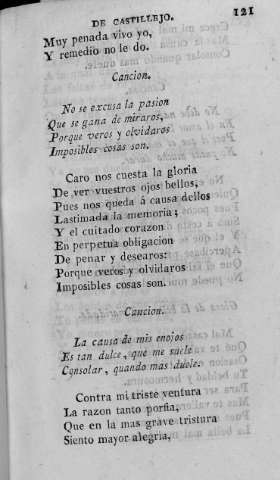 DE CASTILLEJO. 121
Muy penada vivo yo,
Y remedio no le do.
Cancion.
No se excusa la pasion
Que se gana de miraros,
Porque veros y olvidaros
Imposibles cosas son.
Caro nos cuesta la gloria
De ver vuestros ojos bellos,
Pues nos queda á causa dellos
Lastimada la memoria;
Y el cuitado corazon
En perpetua obligacion
De penar y desearos:
Porque veros y olvidaros
Imposibles cosas son.
Cancion.
La causa de mis enojos
Es tan dulce, que me suele
Consolar, quando mas duele.
Contra mi triste ventura
La razon tanto porfia,
Que en la mas grave tristura
Siento mayor alegria,